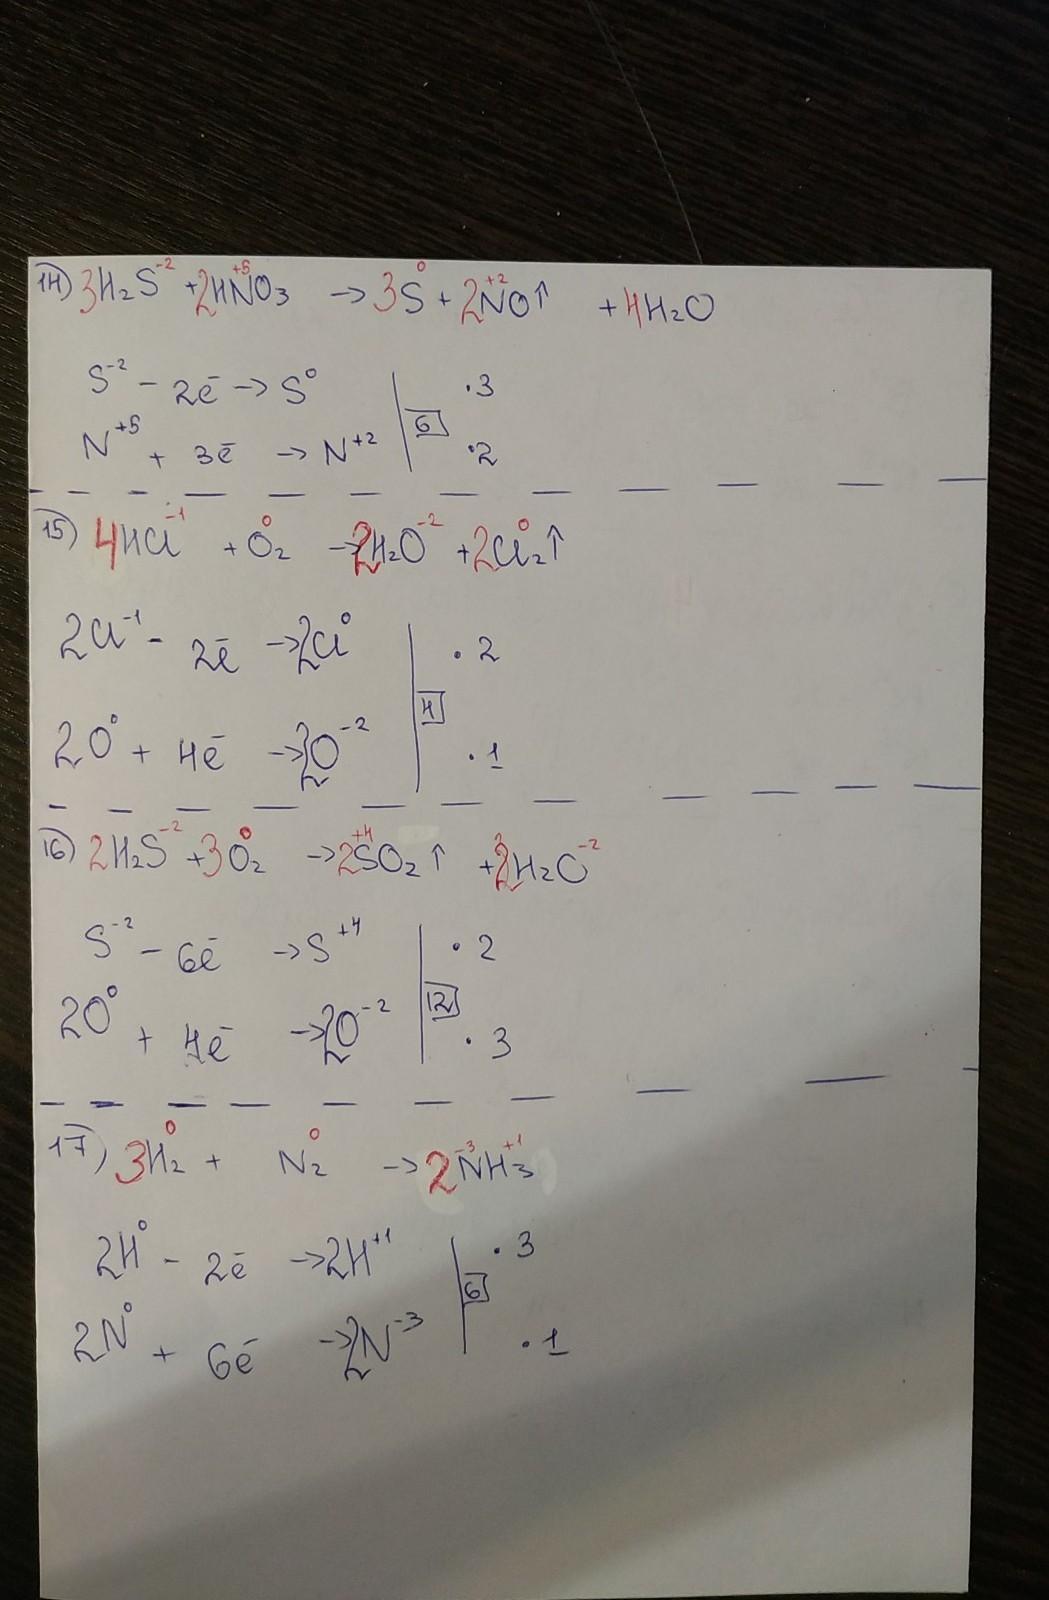 14) 3H₂S⁻² + 2HN⁺⁵O₃ → 3S⁰ + 2N⁺²O↑ + 4H₂O
S⁻² - 2ē → S⁰ | ·3
6
N⁺⁵ + 3ē → N⁺² | ·2
15) 4HCl⁻¹ + O₂⁰ → 2H₂O⁻² + 2Cl₂⁰↑
2Cl⁻¹ - 2ē → 2Cl⁰ | ·2
4
2O⁰ + 4ē → 2O⁻² | ·1
16) 2H₂S⁻² + 3O₂⁰ → 2S⁺⁴O₂↑ + 2H₂O⁻²
S⁻² - 6ē → S⁺⁴ | ·2
12
2O⁰ + 4ē → 2O⁻² | ·3
17) 3H₂⁰ + N₂⁰ → 2N⁻³H₃⁺¹
2H⁰ - 2ē → 2H⁺¹ | ·3
6
2N⁰ + 6ē → 2N⁻³ | ·1